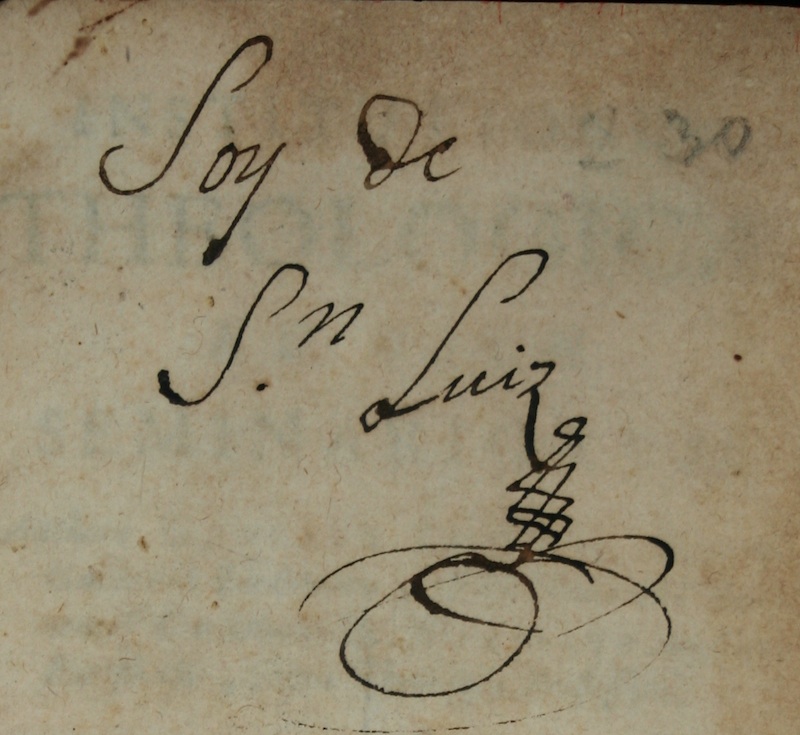 Soy de
230
S.n Luiz